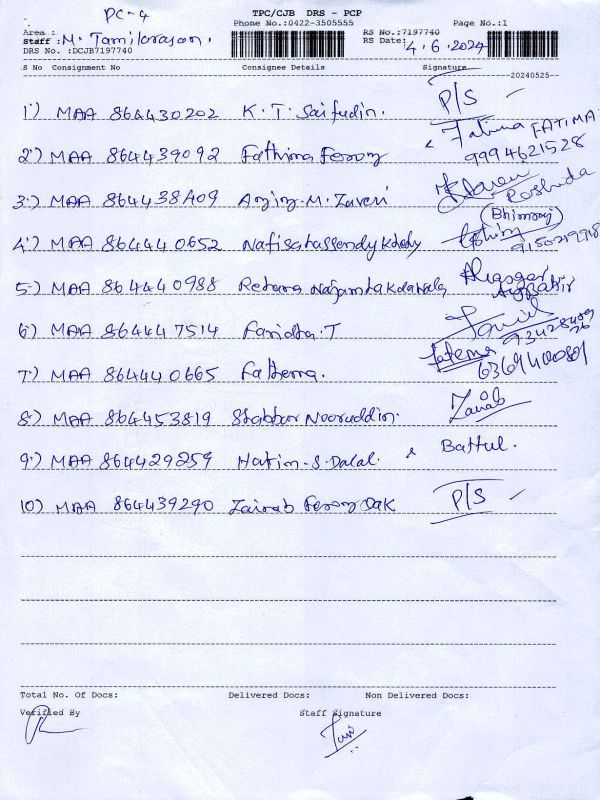 PC-4
TPC/CJB DRS - PCP
Phone No.:0422-3505555 Page No.:1
Area :
Staff : M. Tamilarasan.
DRS No. :DCJB7197740
RS No.:7197740
RS Date: 4.6.2024
S No Consignment No Consignee Details Signature
20240525
1) MAA 864430202 K.T. Saifudin. P/S
2) MAA 864439092 Fathima Feroz Fatima FATIMA
9994621528
3) MAA 864438409 Aziz.M.Zaveri Rashida
4) MAA 864440652 (Bhimraj)
5) MAA 864440988
6) MAA 864447514 Faridha.T
7) MAA 864440665 Fathema. Fatema 6369400801
8) MAA 864453819 Shabbar Nooruddin. Zainab
9) MAA 864429259 Hatim.S.Dalal. Battul.
10) MAA 864439290 Zainab Feroz Oak P/S
Total No. Of Docs: Delivered Docs: Non Delivered Docs:
Verified By Staff Signature